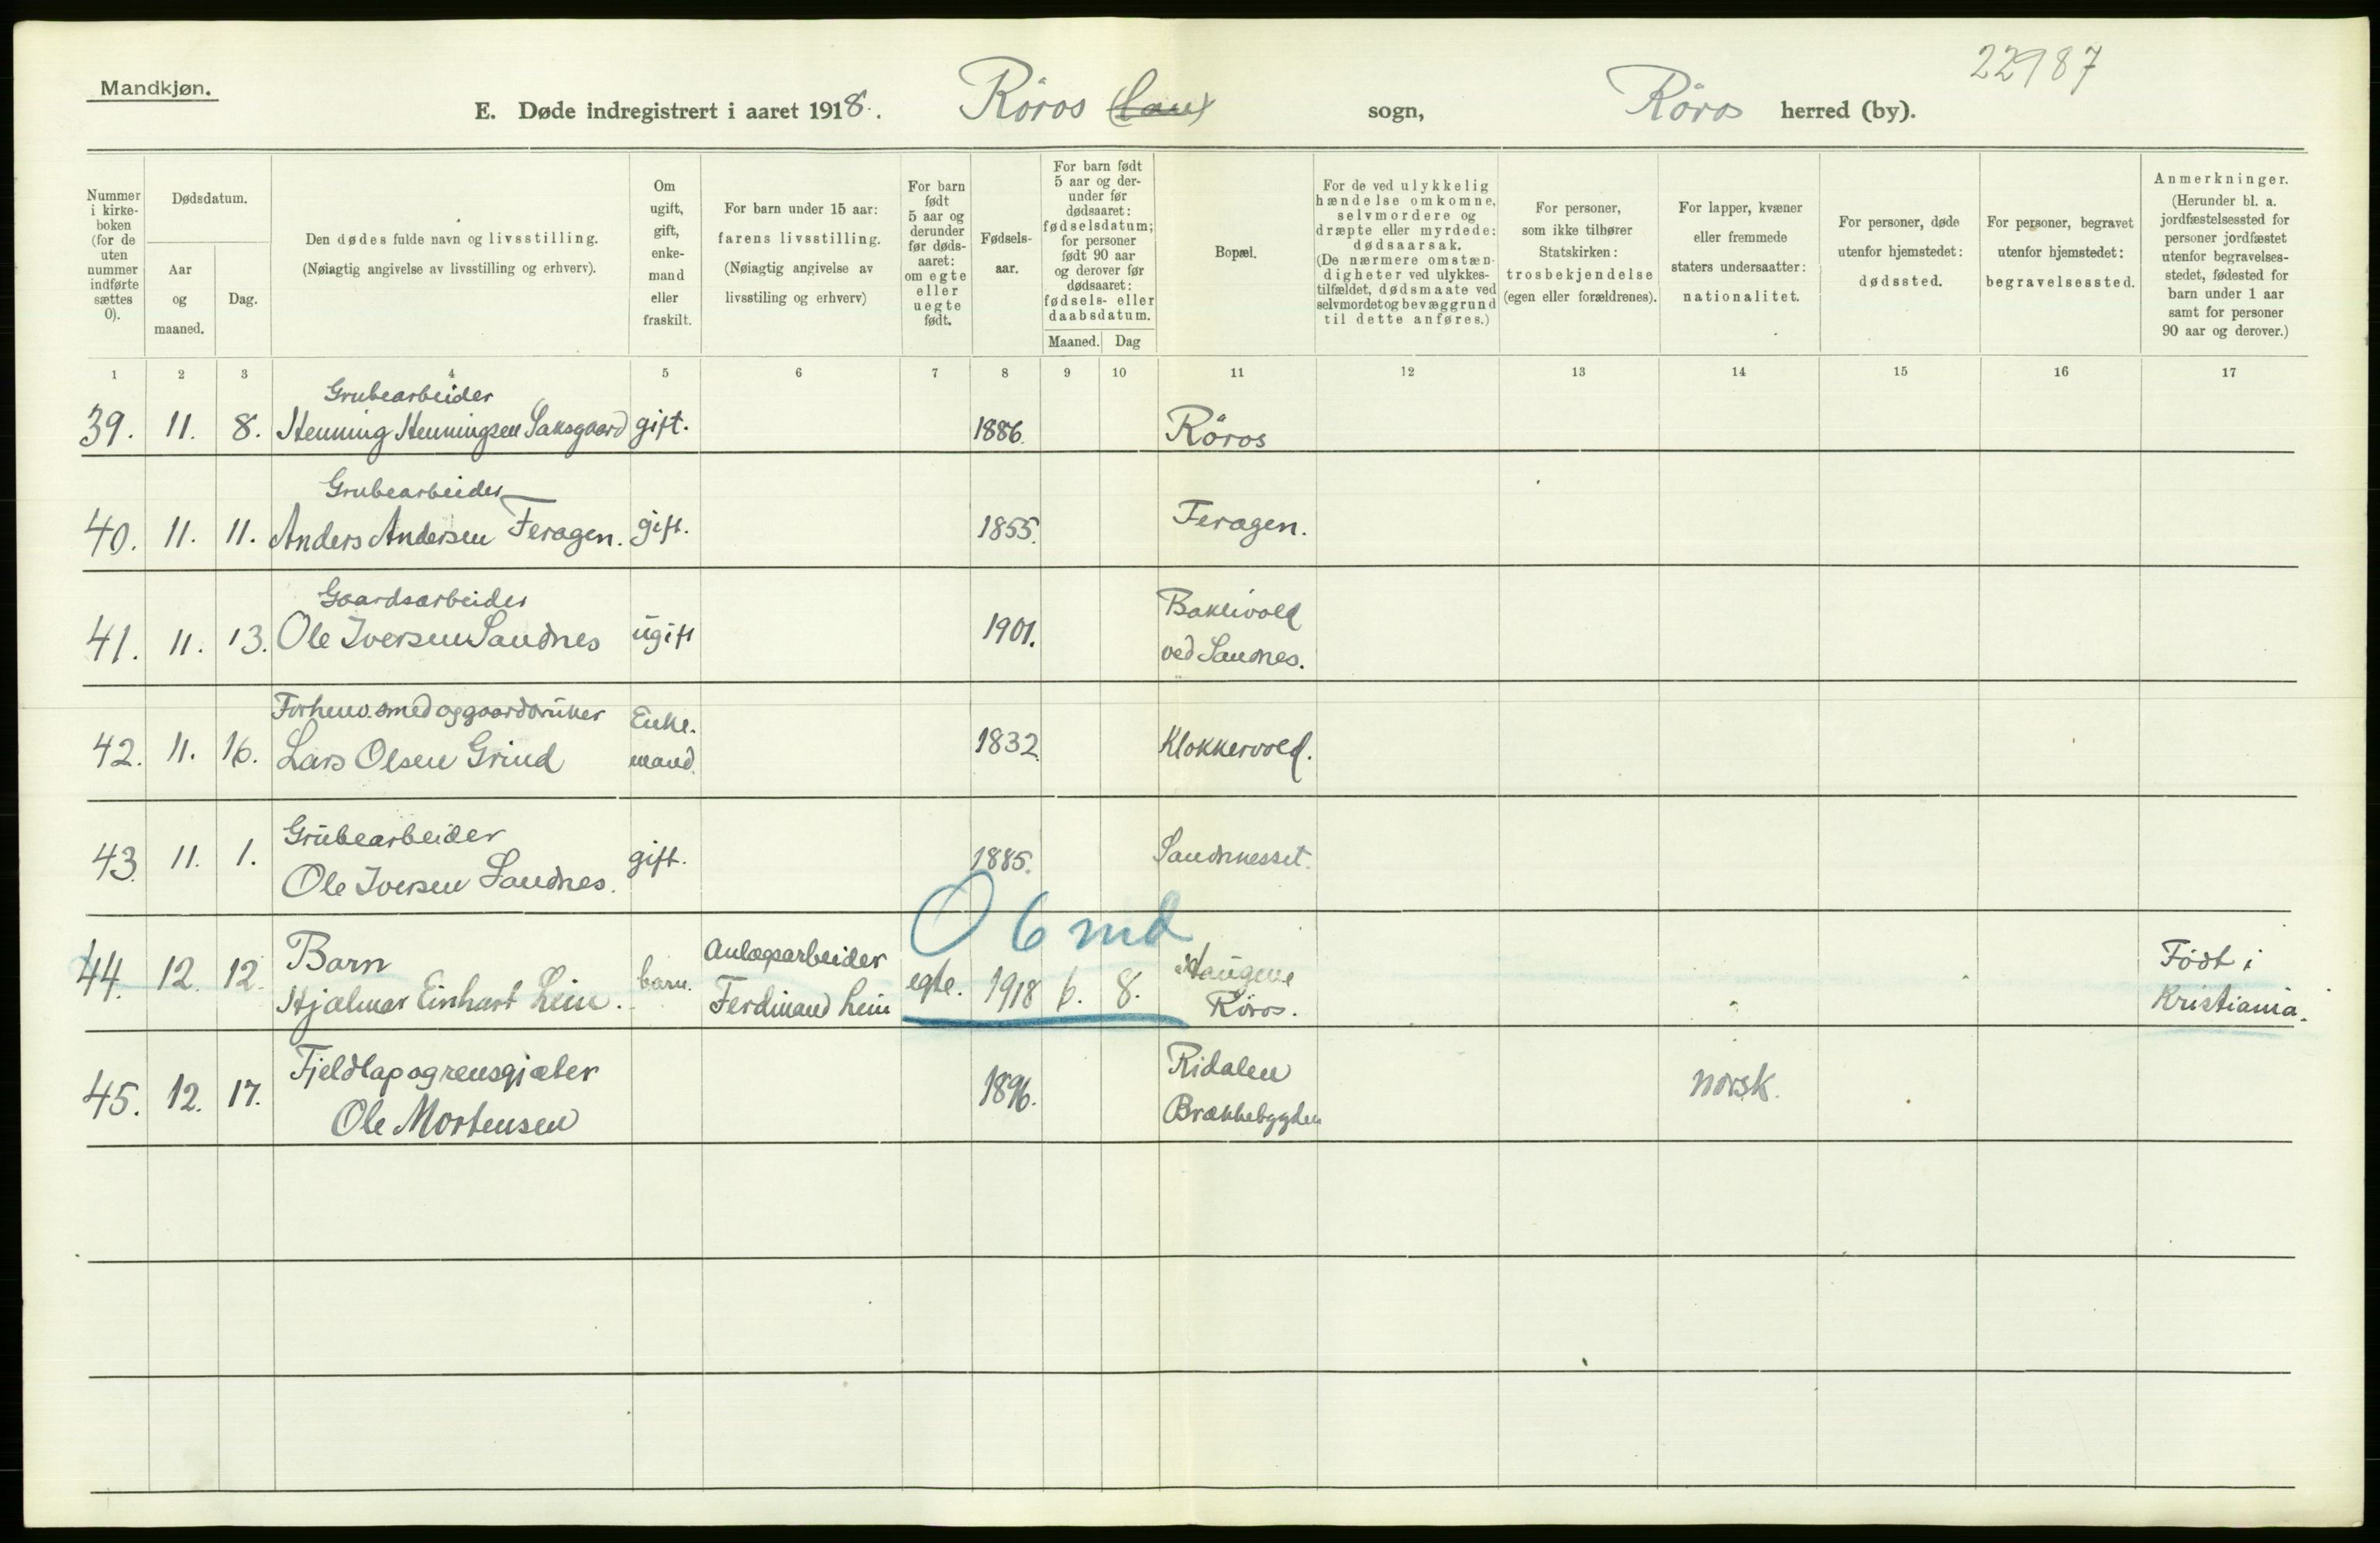 22987
Mandkjøn.
E. Døde indregistrert i aaret 1918. Röros sogn, Röros herred (by).
Nummer i kirkeboken (for de uten nummer indførte sættes 0).
Dødsdatum.
Aar og maaned.
Dag.
Den dødes fulde navn og livsstilling.
(Nøiagtig angivelse av livsstilling og erhverv).
Om ugift, gift, enkemand eller fraskilt.
For barn under 15 aar: farens livsstilling.
(Nøiagtig angivelse av livsstiling og erhverv)
For barn født 5 aar og derunder før dødsaaret: om egte eller uegte født.
Fødselsaar.
For barn født 5 aar og derunder før dødsaaret: fødselsdatum; for personer født 90 aar og derover før dødsaaret: fødsels- eller daabsdatum.
Maaned. Dag
Bopæl.
For de ved ulykkelig hændelse omkomne, selvmordere og dræpte eller myrdede: dødsaarsak.
(De nærmere omstændigheter ved ulykkestilfældet, dødsmaate ved selvmordet og bevæggrund til dette anføres.)
For personer, som ikke tilhører Statskirken: trosbekjendelse (egen eller forældrenes).
For lapper, kvæner eller fremmede staters undersaatter: nationalitet.
For personer, døde utenfor hjemstedet: dødssted.
For personer, begravet utenfor hjemstedet: begravelsessted.
Anmerkninger.
(Herunder bl. a. jordfæstelsessted for personer jordfæstet utenfor begravelsesstedet, fødested for barn under 1 aar samt for personer 90 aar og derover.)
1 2 3 4 5 6 7 8 9 10 11 12 13 14 15 16 17
Grubearbeider
39. 11. 8. Henning Henningsen Saksgaard gift. 1886. Röros
Grubearbeider
40. 11. 11. Anders Andersen Feragen. gift. 1855. Feragen.
Gaardsarbeider Bakkvold
41. 11. 13. Ole Iversen Sandnes ugift 1901. ved Sandnes.
Forhenv. smed og gaardbruker Enke-
42. 11. 16. Lars Olsen Grind mand. 1832. Klokkervold.
Grubearbeider
43. 11. 1. Ole Iversen Sandnes. gift. 1885. Sandnesset.
0 6 md
Barn Anlægsarbeider Haugene Födt i
44. 12. 12. Hjalmar Einhart Lein. barn. Ferdinand Lein egte. 1918 6. 8. Röros. Kristiania.
Fjeldlap og rensgjæter Ridalen
45. 12. 17. Ole Mortensen 1896. Brækkebygden norsk.